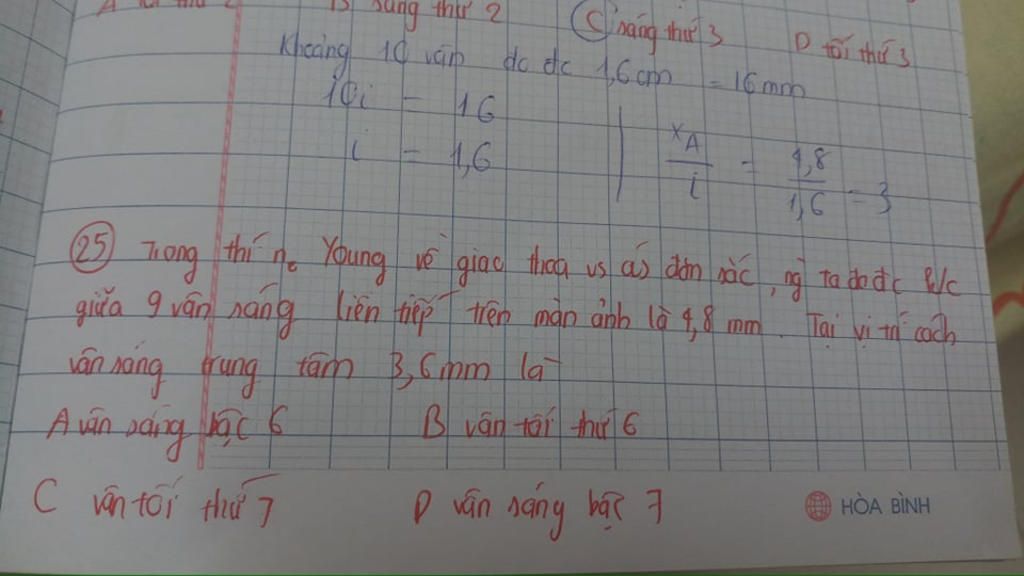 B sáng thứ 2 C sáng thứ 3 D tối thứ 3
Khoảng 10 vân đo đc 1,6cm = 16mm
10i = 16
i = 1,6
xA/i = 4,8/1,6 = 3
25 Trong thí n. Young về giao thoa vs as đơn sắc, ng ta đo đc k/c
giữa 9 vân sáng liên tiếp trên màn ảnh là 4,8 mm. Tại vị trí cách
vân sáng trung tâm 3,6mm là
A vân sáng bậc 6 B vân tối thứ 6
C vân tối thứ 7 D vân sáng bậc 7
HÒA BÌNH